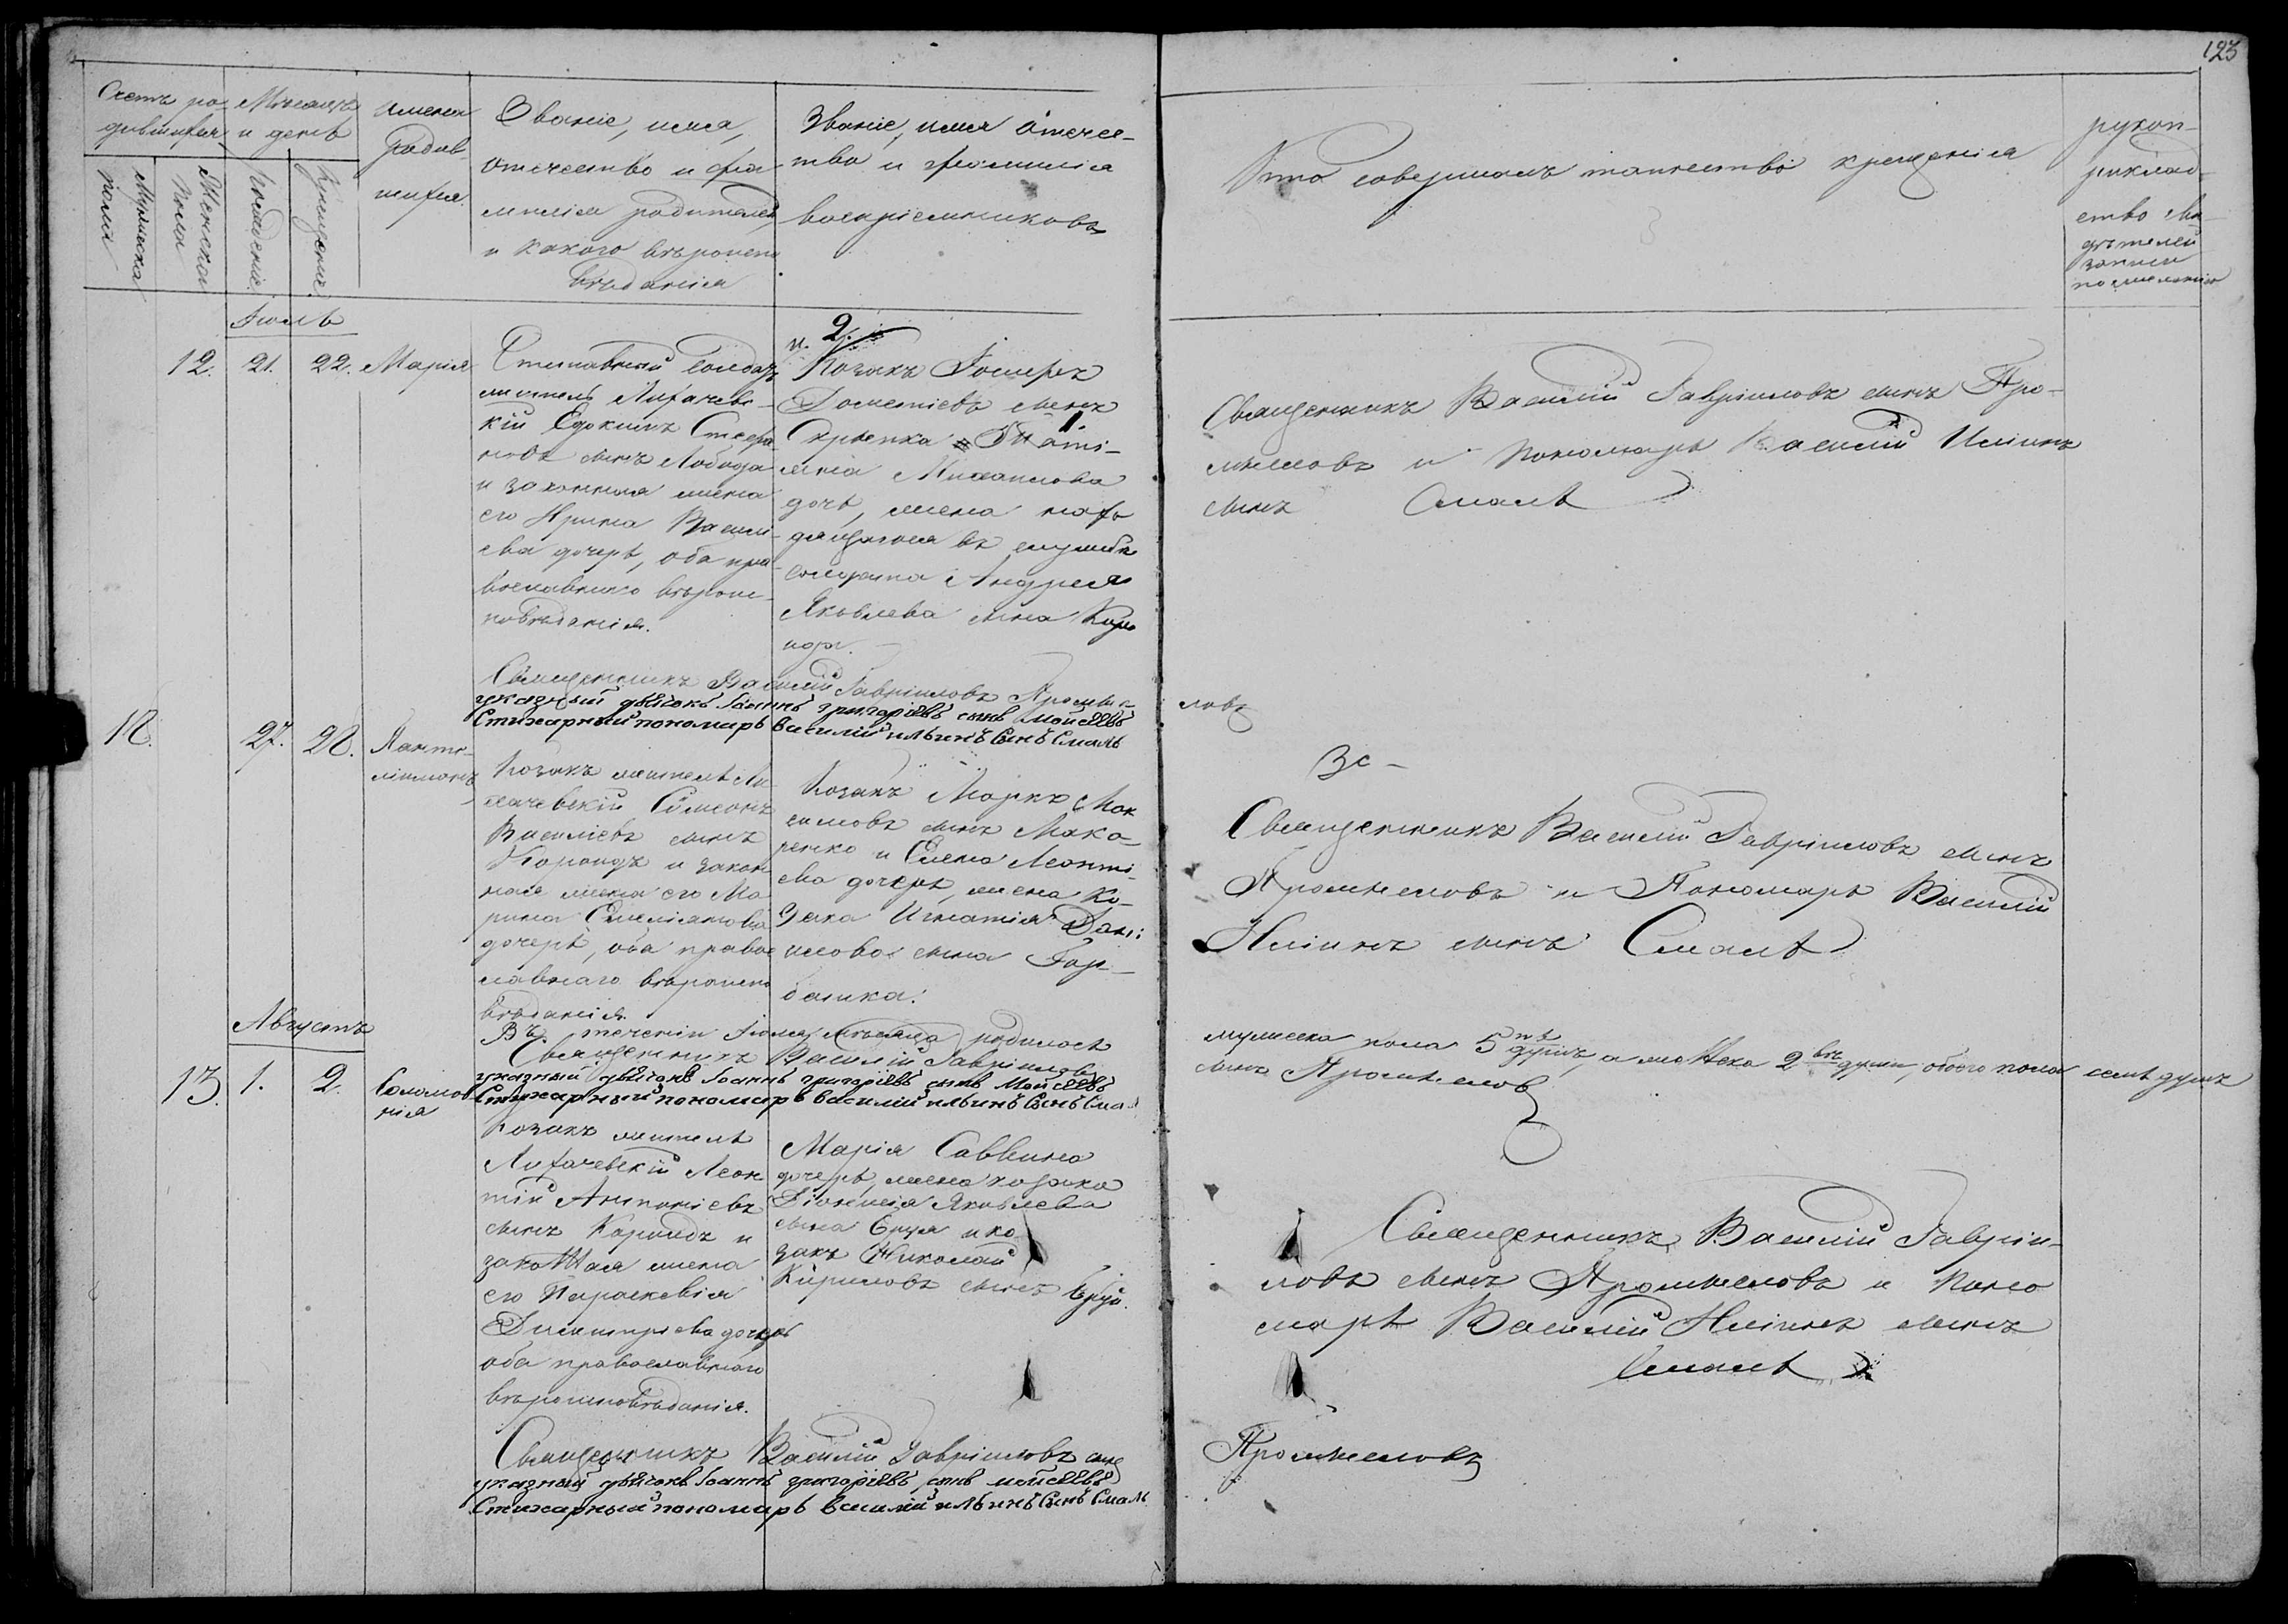 123
Счетъ ро-
дившихся
Мужеска
пола
Женска
пола
Мѣсяцъ
и день
рожденія
крещенія
имена
родив-
шихся.
Званіе, имя,
отечество и фа-
милія родителей,
и какого вѣроиспо
вѣданія
Званіе, имя отечес-
тво и фамилія
воспріемниковъ
Кто совершалъ таинство крещенія
рукоп-
риклад-
ство сви-
дѣтелей
записи
по желанію
Іюль
12. 21. 22. Марія
Отставный солдатъ
житель Лихачевс-
кій Евдокимъ Стефа-
новъ сынъ Лобода
и законная жена
его Ирина Васил-
ева дочерь, оба пра-
вославнаго вѣроис-
повѣданія.
2.
и. Козакъ Іосифъ
Дометіевъ сынъ
1.
Михаилова
дочь, жена нахо
дящагося въ службѣ
солдата Андрея
Яковлева сына
Священникъ Василій Гавріиловъ сынъ Про-
мысловъ и пономарь Василій Иліинъ
сынъ Смаль
Священникъ Василій Гавріиловъ Промыс-
ловъ
указный дьячокъ Іоаннъ григоріевъ сынъ мойсеевъ
Стихарный пономарь василий ильинъ Сынъ Смаль
12. 27. 28. Панте-
лиимонъ
Козакъ житель Ли-
хачевскій Симеонъ
Василіевъ сынъ
Корондъ и закон
ная жена его Ма
рина Емеліянова
дочерь, оба правос
лавнаго вѣроиспо
вѣданія.
Козакъ Марко Мак
симовъ сынъ Мака-
ренко и Елена Леонті-
ева дочерь, жена ко-
зака Игнатія Дані-
илова сына Гор-
банка.
Зс-
Священникъ Василій Гавріиловъ сынъ
Промысловъ и Пономарь Василій
Иліинъ сынъ Смаль
Въ теченіи Іюля мѣсяца родилось
мужеска пола 5 пть душъ, а женска 2 вѣ души, обоего пола семь душъ
Священникъ Василій Гавріиловъ
сынъ Промысловъ
указный дьячокъ Іоаннъ григоріевъ сынъ Мойсеевъ
Стихарный пономарь василий ильинъ Сынъ Смаль
Августъ
13. 1. 2. Соломо-
нія
Козакъ житель
Лихачевскій Леон-
тій Антоніевъ
сынъ Корондъ и
законная жена
его Параскевія
Димитріева дочерь
оба православнаго
вѣроисповѣданія.
Марія Саввина
дочерь, жена козака
Діонисія Яковлева
сына и ко-
закъ Николай
Кириловъ сынъ
Священникъ Василій Гавріи-
ловъ сынъ Промысловъ и поно
марь Василій Иліинъ сынъ
Смаль
Священникъ Василій Гавріиловъ сынъ
Промысловъ
указный дьячокъ Іоаннъ григоріевъ сынъ мойсеевъ
Стихарный пономарь василий ильинъ Сынъ Смаль